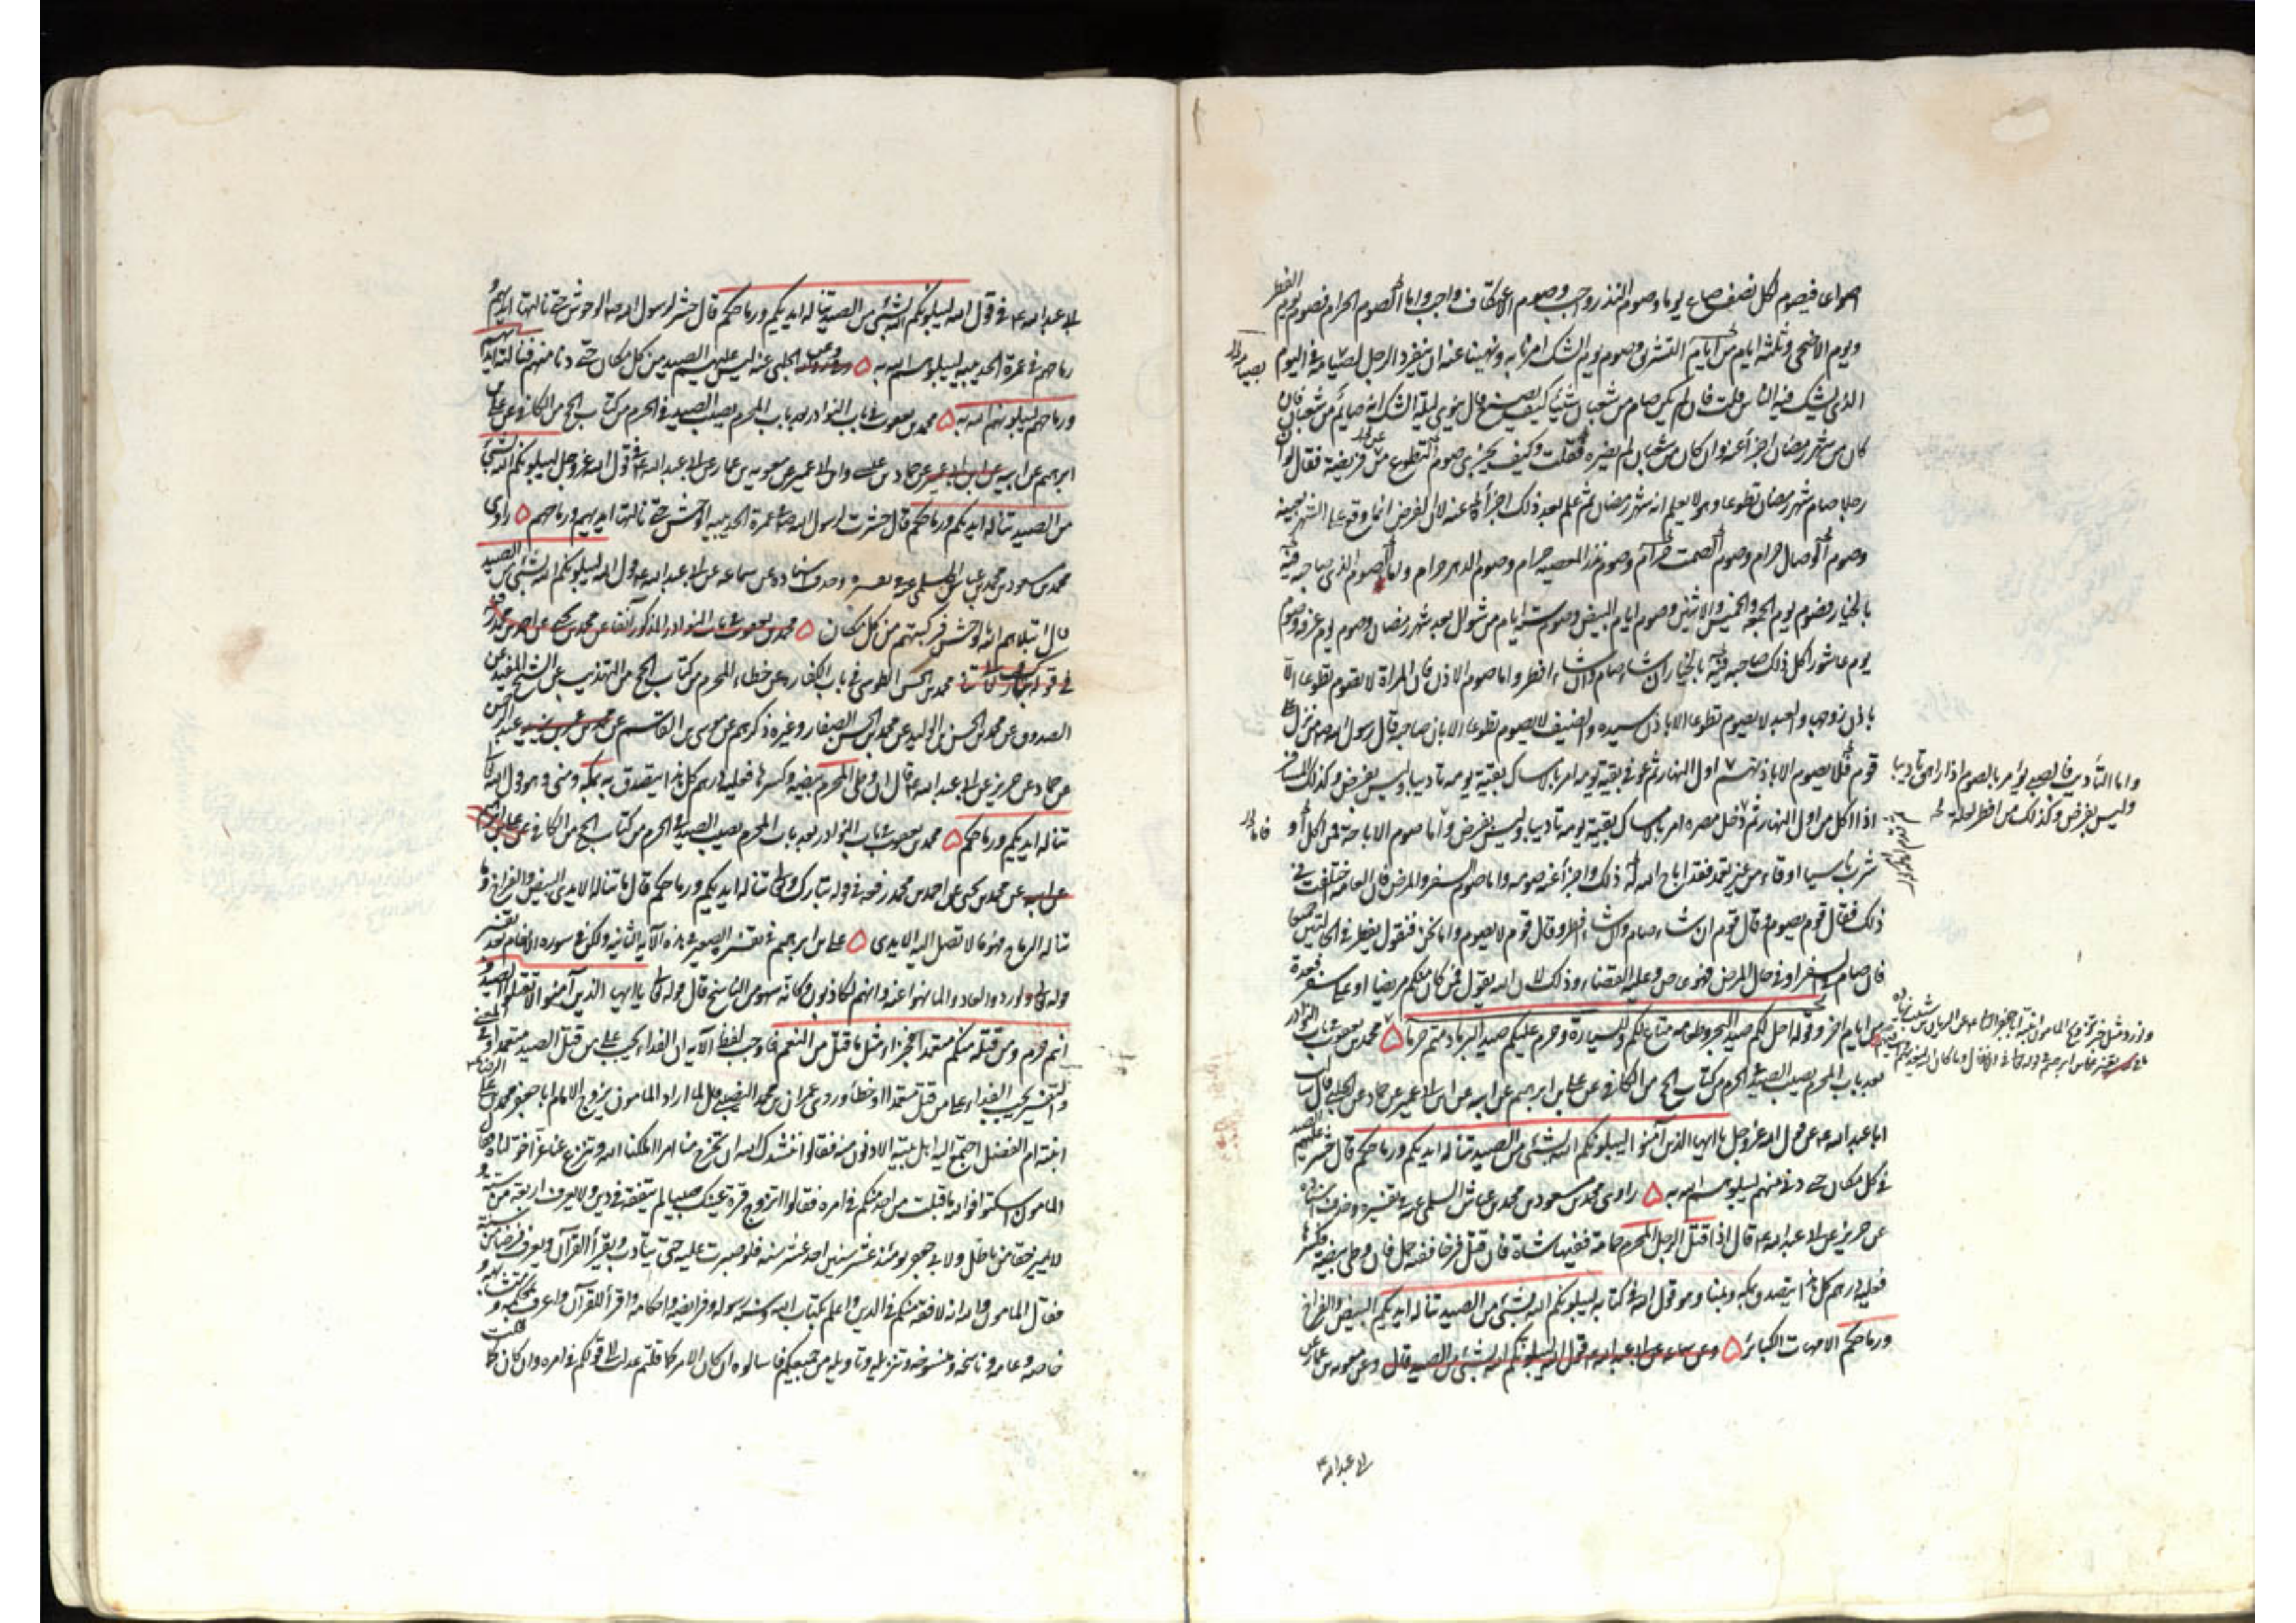 اصواعا فيصوم لكل نصف صاع يوما وصوم النذر واجب وصوم الاعتكاف واجب واما الصوم الحرام فصوم يوم الفطر
ويوم الاضحى وثلثة ايام من ايام التشريق وصوم يوم الشك امرنا به ونهينا عنه ان ينفرد الرجل لصيامه في اليوم
الذي يشك فيه الناس قلت فان لم يكن صام من شعبان شيئا كيف يصنع قال ينوي ليلة الشك انه صائم من شعبان فان
كان من شهر رمضان اجزأ عنه وان كان من شعبان لم يضره فقلت وكيف يجزي صوم التطوع عن فريضة فقال لو ان
رجلا صام شهر رمضان تطوعا وهو لا يعلم انه شهر رمضان ثم علم بعد ذلك اجزأ عنه لان الفرض انما وقع على الشهر بعينه
وصوم الوصال حرام وصوم الصمت حرام وصوم نذر المعصية حرام وصوم الدهر حرام واما الصوم الذي صاحبه فيه
بالخيار فصوم يوم الجمعة والخميس والاثنين وصوم ايام البيض وصوم ستة ايام من شوال بعد شهر رمضان وصوم يوم عرفة وصوم
يوم عاشورا كل ذلك صاحبه فيه بالخيار ان شاء صام وان شاء افطر واما صوم الاذن فان المراة لا تصوم تطوعا الا
باذن زوجها والعبد لا يصوم تطوعا الا باذن سيده والضيف لا يصوم تطوعا الا باذن صاحبه قال رسول الله ص من نزل على
قوم فلا يصوم الا باذنهم اول النهار ثم قوى بقية يومه امر بالامساك بقية يومه تاديبا وليس بفرض وكذلك المسافر
اذا اكل من اول النهار ثم دخل مصره امر بالامساك بقية يومه تاديبا وليس بفرض واما صوم الاباحة فمن اكل او
شرب ناسيا او قاء من غير تعمد فقد اباح الله له ذلك واجزأ عنه صومه واما صوم السفر والمرض فان العامة اختلفت في
ذلك فقال قوم يصوم وقال قوم ان شاء صام وان شاء افطر وقال قوم لا يصوم واما نحن فنقول يفطر في الحالتين جميعا
فان صام في السفر او في حال المرض فهو عاص وعليه القضاء وذلك لان الله يقول فمن كان منكم مريضا او على سفر فعدة
من ايام اخر وقوله احل لكم صيد البحر وطعامه متاعا لكم وللسيارة وحرم عليكم صيد البر ما دمتم حرما ۵ محمد بن يعقوب في باب النوادر
بعد باب المحرم يصيب الصيد في الحرم من كتاب الحج من الكافي عن علي بن ابراهيم عن ابيه عن ابن ابي عمير عن حماد عن الحلبي قال سالت
ابا عبد الله ع عن قول الله عز وجل يا ايها الذين آمنوا ليبلونكم الله بشئ من الصيد تناله ايديكم ورماحكم قال حشر عليهم الصيد
في كل مكان حتى دنى منهم ليبلوهم الله به ۵ راوي محمد بن مسعود بن محمد بن عياش السلمي في تفسيره وحذف اسناده
عن حريز عن ابي عبد الله ع قال اذا قتل الرجل المحرم حمامة ففيها شاة فان قتل فرخا ففيه جمل فان وطى بيضة فكسرها
فعليه درهم كل هذا يتصدق بمكة وبمنا وهو قول الله في كتابه ليبلونكم الله بشئ من الصيد تناله ايديكم البيض والفراخ
ورماحكم الامهات الكبائر ۵ وعن سماعة عن ابي عبد الله ع قول الله ليبلونكم الله بشئ من الصيد قال وعن معوية بن عمار عن
ابي عبد الله ع
بصيام
فاما
واما التأديب فالصبي يؤمر بالصوم اذا راهق تاديبا
وليس بفرض وكذلك من افطر لعلة
ابي عبد الله ع في قول الله ليبلونكم الله بشئ من الصيد تناله ايديكم ورماحكم قال حشر لرسول الله ص الوحوش حتى نالتها ايديهم و
رماحهم في عمرة الحديبية ليبلوهم الله به ۵ وعن الحلبي عنه ليس عليهم الصيد من كل مكان حتى دنا منهم فنالته ايديهم
ورماحهم ليبلونهم الله به ۵ محمد بن يعقوب في باب النوادر بعد باب المحرم يصيب الصيد في الحرم من كتاب الحج من الكافي عن علي بن
ابراهيم عن ابيه عن ابن ابي عمير عن حماد بن علي وابن ابي عمير عن معوية بن عمار عن ابي عبد الله ع في قول الله عز وجل ليبلونكم الله بشئ
من الصيد تناله ايديكم ورماحكم قال حشرت لرسول الله ص في عمرة الحديبية الوحش حتى نالتها ايديهم ورماحهم ۵ راوي
محمد بن مسعود بن محمد بن عياش السلمي في تفسيره وحذف اسناده عن سماعة عن ابي عبد الله ع في قول الله ليبلونكم الله بشئ من الصيد
قال ابتلاهم الله بالوحش فركبتهم من كل مكان ۵ محمد بن يعقوب في باب النوادر المذكور آنفا عن محمد بن يحيى عن احمد بن محمد رفعه
في قوله تبارك وتعالى محمد بن الحسن الطوسي في باب الكفارة عن خطاء المحرم من كتاب الحج من التهذيب عن الشيخ المفيد عن
الصدوق عن محمد بن الحسن بن الوليد عن محمد بن الحسن الصفار وغيره ذكرهم عن موسى بن القاسم عن عبد الرحمن
عن حماد عن حريز عن ابي عبد الله ع قال ان وطى المحرم بيضة وكسرها فعليه درهم كل هذا يتصدق به بمكة ومنى وهو قول الله تعالى
تناله ايديكم ورماحكم ۵ محمد بن يعقوب في باب النوادر بعد باب المحرم يصيب الصيد في الحرم من كتاب الحج من الكافي عن علي بن ابراهيم
عن ابيه عن محمد بن يحيى عن احمد بن محمد رفعه في قوله تبارك وتعالى تناله ايديكم ورماحكم قال ما تناله الايدي البيض والفراخ وما
تناله الرماح فهو ما لا تصل اليه الايدي ۵ علي بن ابراهيم في تفسير الصيد في هذه الآية الثانية ولكن في سورة الانعام بعد تفسير
قوله تعالى ولو ردوا لعادوا لما نهوا عنه وانهم لكاذبون وكانه سهو من الناسخ قال قوله تعالى يا ايها الذين آمنوا لا تقتلوا الصيد و
انتم حرم ومن قتله منكم متعمدا فجزاء مثل ما قتل من النعم فاوجب لفظ الآية ان الفداء يجب على من قتل الصيد متعمدا وفي المعنى
والتفسير يجب الفداء على من قتل متعمدا او خطأ وروى عمران بن محمد النصيبي قال لما اراد المامون يزوج الامام ابا جعفر محمد بن علي الرضا ع
ابنته ام الفضل اجتمع اليه اهل بيته الادنون منه فقالوا ننشدك الله ان تخرج منا امرا ملكنا الله وتنزع عنا عزا فقال
المامون اسكتوا فوالله ما قبلت من احد منكم في امره فقالوا اتزوج قرة عينك صبيا لم يتفقه في دين ولا يعرف فريضة من سنة و
لا يميز حقا من باطل ولابي جعفر يومئذ عشر سنين او احد عشر سنة فلو صبرت عليه حتى يتادب ويقرأ القرآن ويعرف فرضا من سنة
فقال المامون والله انه لافقه منكم في الدين واعلم بكتاب الله وسنة رسوله وفرايضه واحكامه واقرأ للقرآن واعرف بمحكمه ومتشابهه و
خاصه وعامه وناسخه ومنسوخه وتنزيله وتاويله من جميعكم فاسالوه ان كان الامر كما قلتم عدلت الى قولكم في امره وان كان كما قلت